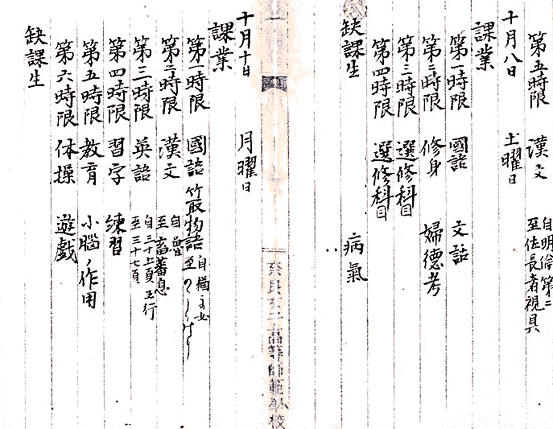 第五時限 漢文 自明倫第二
至佐長者視具
十月八日 土曜日
課業
第一時限 國語 文話
第二時限 修身 婦德考
第三時限 選修科目
第四時限 選修科目
缺課生 病氣
奈良女子高等師範學校
十月十日 月曜日
課業
第一時限 國語 竹取物語
第二時限 漢文 自魯
至畜蕃息
第三時限 英語 自三十上頁五行
至三十七頁
第四時限 習字 練習
第五時限 教育 小腦ノ作用
第六時限 体操 遊戯
缺課生